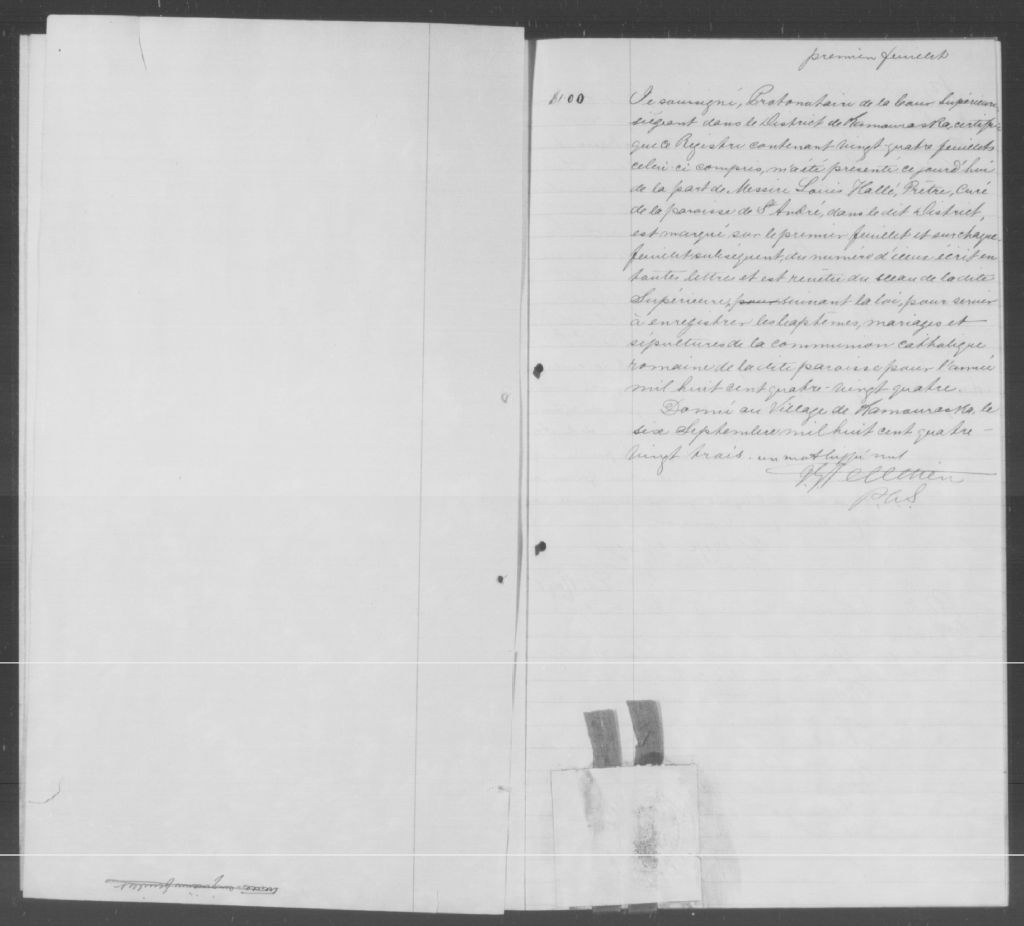 premier feuillet
$1.00
Je soussigné, Protonotaire de la Cour Supérieure
siégeant dans le District de Kamouraska, certifie
que ce Registre contenant vingt-quatre feuillets
celui ci compris, m'a été présenté ce jourd'hui
de la part de Messire Louis Hallé, Prêtre, Curé
de la paroisse de St André, dans le dit District,
est marqué sur le premier feuillet et sur chaque
feuillet subséquent, du numéro d'iceux écrit en
toutes lettre et est revêtu du sceau de la dite
Supérieure, pour suivant la loi, pour servir
à enregistrer les baptêmes, mariages et
sépultures de la communion catholique
romaine de la dite paroisse pour l'année
mil huit cent quatre-vingt quatre.
Donné au Village de Kamouraska, le
six Septembre mil huit cent quatre-
vingt trois. un mot biffé nul
P.C.S.